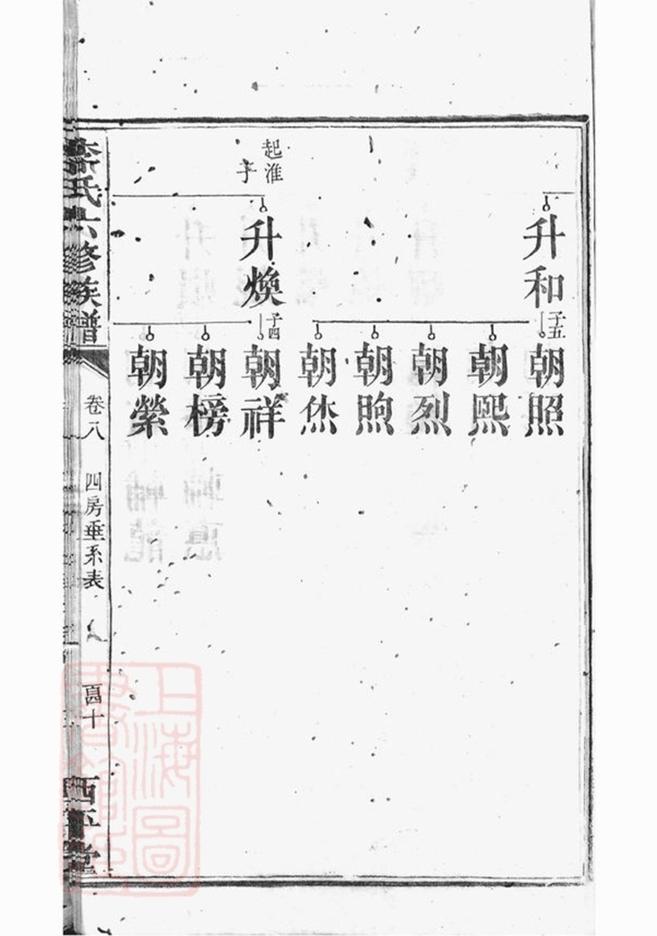 升和
子五
朝照
朝熙
朝烈
朝煦
朝㶣
起淮子
升煥
子四
朝祥
朝榜
朝縈
氏六修族譜
卷八
四房垂系表
西平堂
上海圖書館